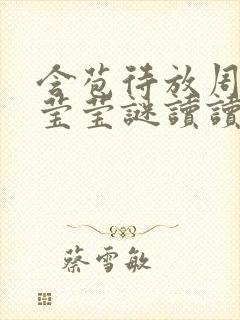 含苞待放周
莹莹謎讀讀
蔡雪敏